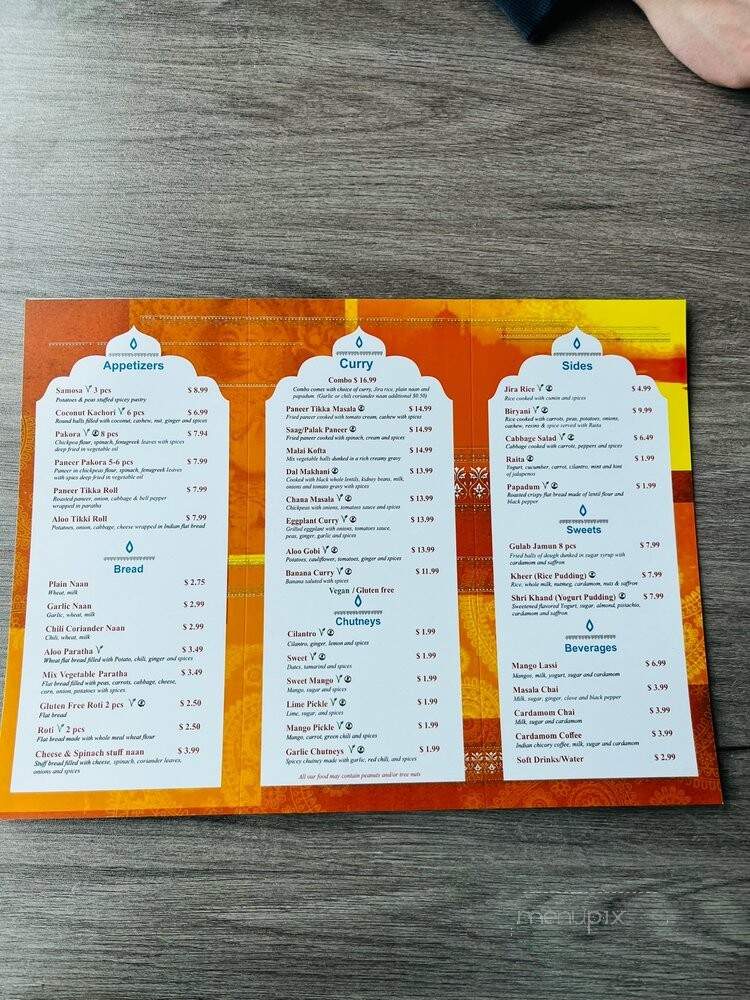 Appetizers
Samosa 3 pcs $ 8.99
Potatoes & peas stuffed spicey pastry
Coconut Kachori 6 pcs $ 6.99
Round balls filled with coconut, cashew, nut, ginger and spices
Pakora 8 pcs $ 7.94
Chickpea flour, spinach, fenugreek leaves with spices
deep fried in vegetable oil
Paneer Pakora 5-6 pcs $ 7.99
Paneer in chickpeas flour, spinach, fenugreek leaves
with spices deep fried in vegetable oil
Paneer Tikka Roll $ 7.99
Roasted paneer, onion, cabbage & bell pepper
wrapped in paratha
Aloo Tikki Roll $ 7.99
Potatoes, onion, cabbage, cheese wrapped in Indian flat bread
Bread
Plain Naan $ 2.75
Wheat, milk
Garlic Naan $ 2.99
Garlic, wheat, milk
Chili Coriander Naan $ 2.99
Chili, wheat, milk
Aloo Paratha $ 3.49
Wheat flat bread filled with Potato, chili, ginger and spices
Mix Vegetable Paratha $ 3.49
Flat bread filled with peas, carrots, cabbage, cheese,
corn, onion, potatoes with spices.
Gluten Free Roti 2 pcs $ 2.50
Flat bread
Roti 2 pcs $ 2.50
Flat bread made with whole meal wheat flour
Cheese & Spinach stuff naan $ 3.99
Stuff bread filled with cheese, spinach, coriander leaves,
onions and spices
Curry
Combo $ 16.99
Combo comes with choice of curry, Jira rice, plain naan and
papadum. (Garlic or chili coriander naan additional $0.50)
Paneer Tikka Masala $ 14.99
Fried paneer cooked with tomato cream, cashew with spices
Saag/Palak Paneer $ 14.99
Fried paneer cooked with spinach, cream and spices
Malai Kofta $ 14.99
Mix vegetable balls dunked in a rich creamy gravy
Dal Makhani $ 13.99
Cooked with black whole lentils, kidney beans, milk,
onions and tomato gravy with spices
Chana Masala $ 13.99
Chickpeas with onions, tomatoes sauce and spices
Eggplant Curry $ 13.99
Grilled eggplant with onions, tomatoes sauce,
peas, ginger, garlic and spices
Aloo Gobi $ 13.99
Potatoes, cauliflower, tomatoes, ginger and spices
Banana Curry $ 11.99
Banana saluted with spices
Vegan / Gluten free
Chutneys
Cilantro $ 1.99
Cilantro, ginger, lemon and spices
Sweet $ 1.99
Dates, tamarind and spices
Sweet Mango $ 1.99
Mango, sugar and spices
Lime Pickle $ 1.99
Lime, sugar, and spices
Mango Pickle $ 1.99
Mango, carrot, green chili and spices
Garlic Chutneys $ 1.99
Spicey chutney made with garlic, red chili, and spices
All our food may contain peanuts and/or tree nuts
Sides
Jira Rice $ 4.99
Rice cooked with cumin and spices
Biryani $ 9.99
Rice cooked with carrots, peas, potatoes, onions,
cashew, resins & spice served with Raita
Cabbage Salad $ 6.49
Cabbage cooked with carrots, peppers and spices
Raita $ 1.99
Yogurt, cucumber, carrot, cilantro, mint and hint
of jalapenos
Papadum $ 1.99
Roasted crispy flat bread made of lentil flour and
black pepper
Sweets
Gulab Jamun 8 pcs $ 7.99
Fried balls of dough dunked in sugar syrup with
cardamom and saffron
Kheer (Rice Pudding) $ 7.99
Rice, whole milk, nutmeg, cardamom, nuts & saffron
Shri Khand (Yogurt Pudding) $ 7.99
Sweetened flavored Yogurt, sugar, almond, pistachio,
cardamom and saffron
Beverages
Mango Lassi $ 6.99
Mangoe, milk, yogurt, sugar and cardamom
Masala Chai $ 3.99
Milk, sugar, ginger, clove and black pepper
Cardamom Chai $ 3.99
Milk, sugar and cardamom
Cardamom Coffee $ 3.99
Indian chicory coffee, milk, sugar and cardamom
Soft Drinks/Water $ 2.99
menupix